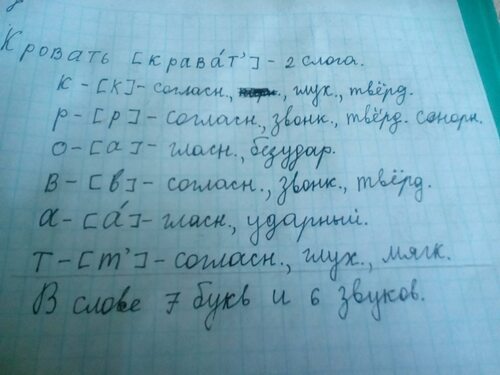 Кровать [крава́т’] - 2 слога.
к - [к] - согласн., глух., твёрд.
р - [р] - согласн., звонк., твёрд. сонорн.
о - [а] - гласн., безудар.
в - [в] - согласн., звонк., твёрд.
а - [а́] - гласн., ударный.
т - [т’] - согласн., глух., мягк.
В слове 7 букв и 6 звуков.